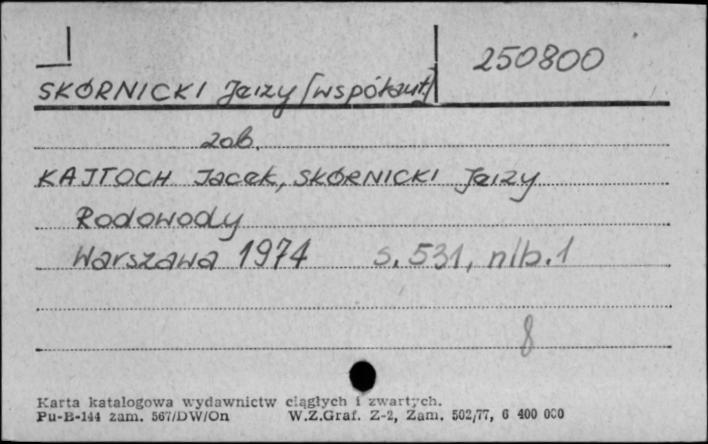 250800
SKÓRNICKI Jerzy [współaut.]
zob.
KAJTOCH Jacek, SKÓRNICKI Jerzy
Rodowody
Warszawa 1974 s. 531, nlb. 1
8
Karta katalogowa wydawnictw ciągłych i zwartych.
Pu-B-144 zam. 567/DW/On W.Z.Graf. Z-2, Zam. 502/77, 6 400 000